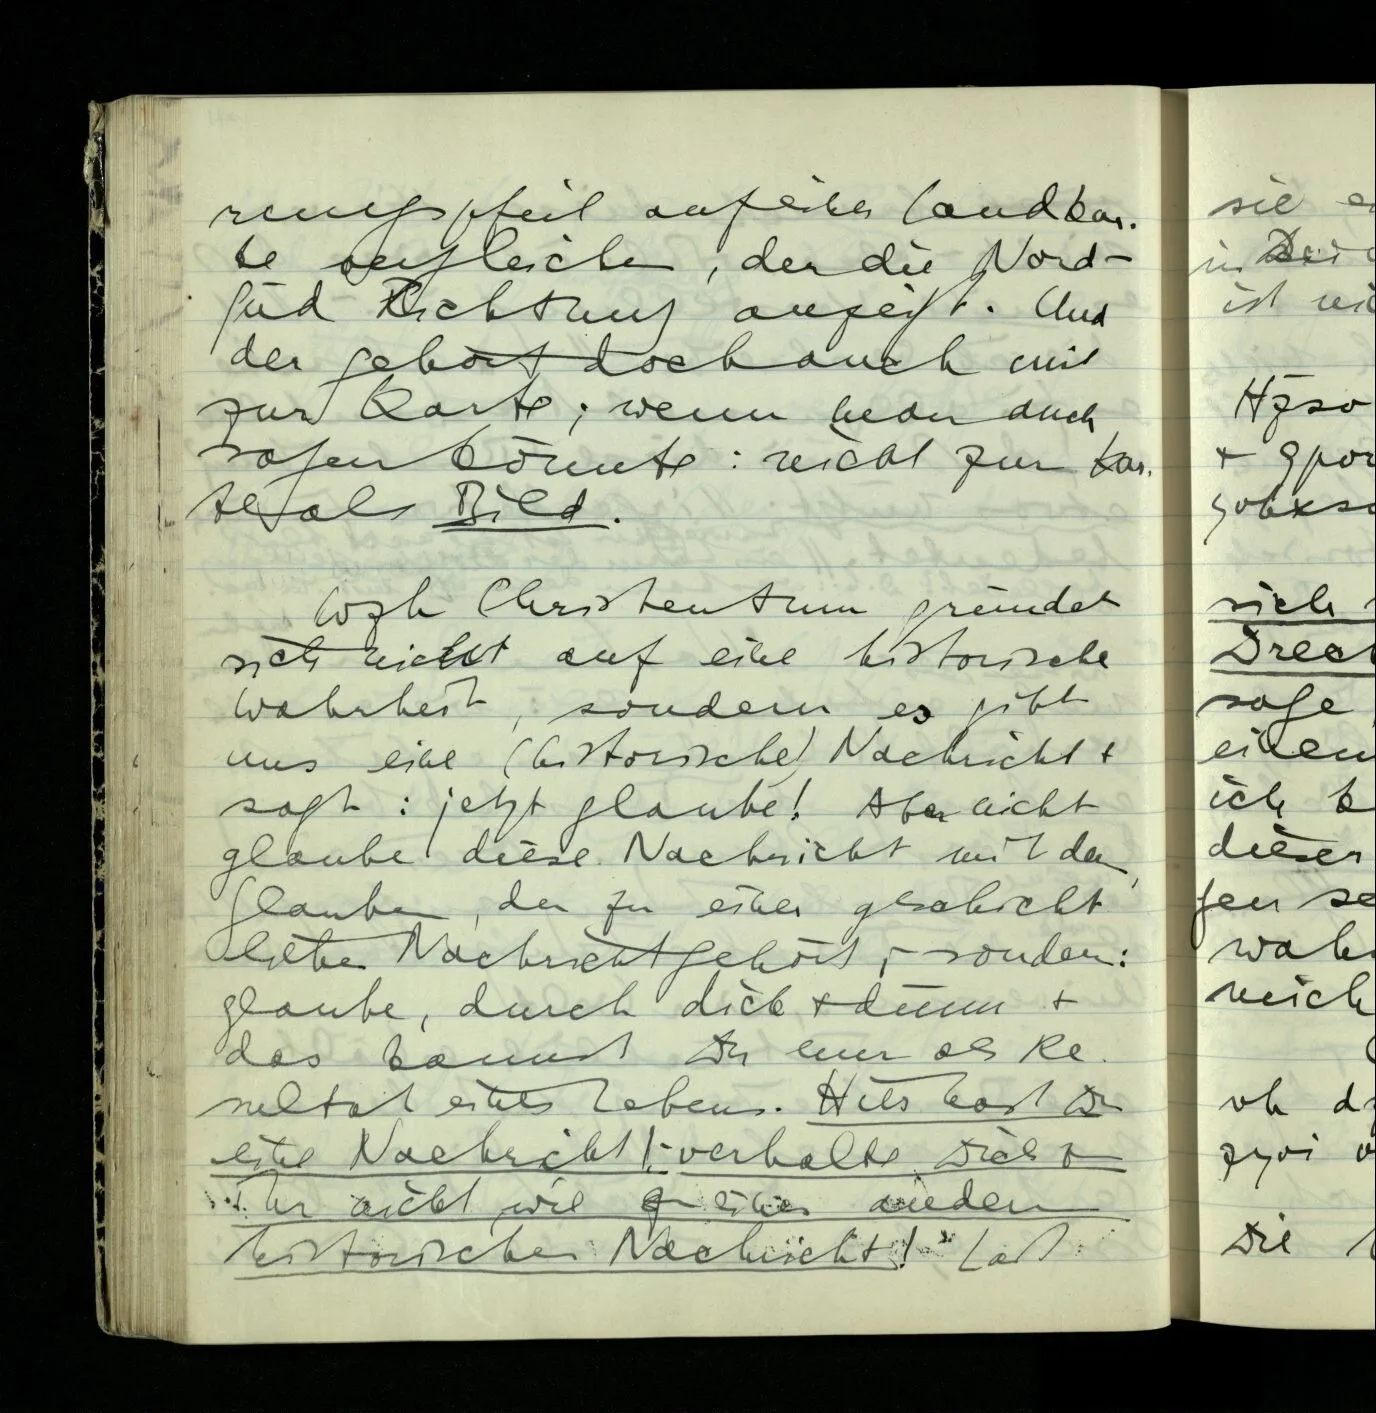 rungspfeil auf einer Landkar-
te vergleichen, der die Nord-
Süd Richtung anzeigt. Und
der gehört doch auch mit
zur Karte; wenn man auch
sagen könnte: nicht zur Kar-
te als Bild.
Christentum gründet
sich nicht auf eine historische
Wahrheit, sondern es gibt
uns eine (historische) Nachricht +
sagt: jetzt glaube! Aber nicht
glaube diese Nachricht mit dem
Glauben, der zu einer geschicht-
lichen Nachricht gehört, – sondern:
glaube, durch dick + dünn +
das kannst Du nur als Re-
sultat eines Lebens. Hier hast Du
eine Nachricht! – verhalte Dich zu
ihr nicht wie zu einer anderen
historischen Nachricht! Laß
sie
in
ist
+
sich
sage
einem
ich
dieser
Die